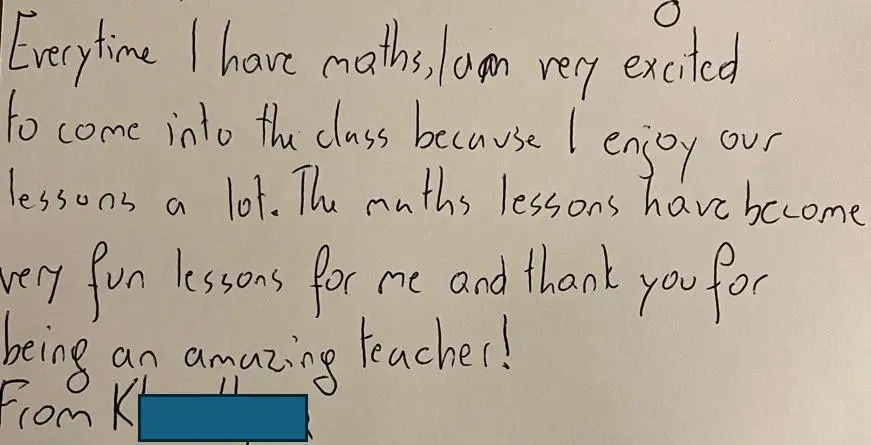 Everytime I have maths, I am very excited
to come into the class because I enjoy our
lessons a lot. The maths lessons have become
very fun lessons for me and thank you for
being an amazing teacher!
From